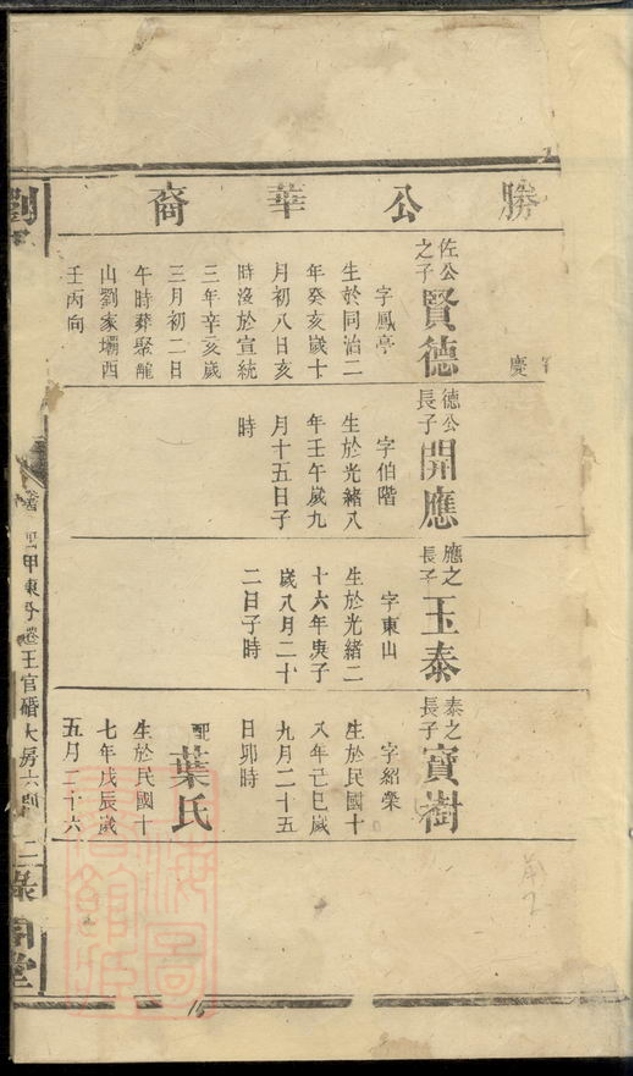 勝公華裔
慶
佐公
之子
賢德
字鳳亭
生於同治二
年癸亥歲十
月初八日亥
時沒於宣統
三年辛亥歲
三月初二日
午時葬聚龍
山劉家壩酉
壬丙向
德公
長子
開應
字伯階
生於光緒八
年壬午歲九
月十五日子
時
應之
長子
玉泰
字東山
生於光緒二
十六年庚子
歲八月二十
二日子時
泰之
長子
寶樹
字紹榮
生於民國十
八年己巳歲
九月二十五
日卯時
配
葉氏
生於民國十
七年戊辰歲
五月二十六
劉
甲東分卷王官碈大房六
二
堂
16